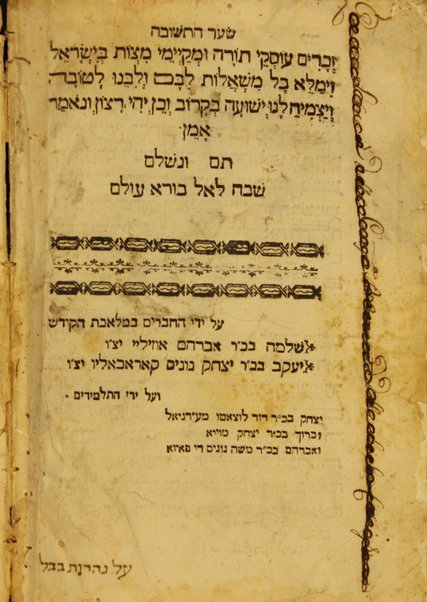 שער התשובה
זְכָרִים עוסְקֵי תוֹרָה וּמְקַיְימֵי מִצְוֹת בְּיִשְׂרָאֵל
וִימַלֵּא כָּל מִשְׁאֲלוֹת לִבָּם וְלִבֵּנוּ לְטוֹבָה
וְיַצְמִיחַ לָנוּ יְשׁוּעָה בְּקָרוֹב וְכֵן יְהִי רָצוֹן וְנֹאמַר
אָמֵן׃
תם ונשלם
שבח לאל בורא עולם
על ידי החברים במלאכת הקודש
שלמה בכ״ר אברהם אוזיליי יצ״ו
יעקב בכ״ר יצחק נונים קאראבאליו יצ״ו
ועל ידי התלמידים ׃
יצחק בכ״ר דוד לוצאטו מע״דניאל
וברוך בכ״ר יצחק
ואברהם בכ״ר משה נונים די פאיוא
על נהרות בבל